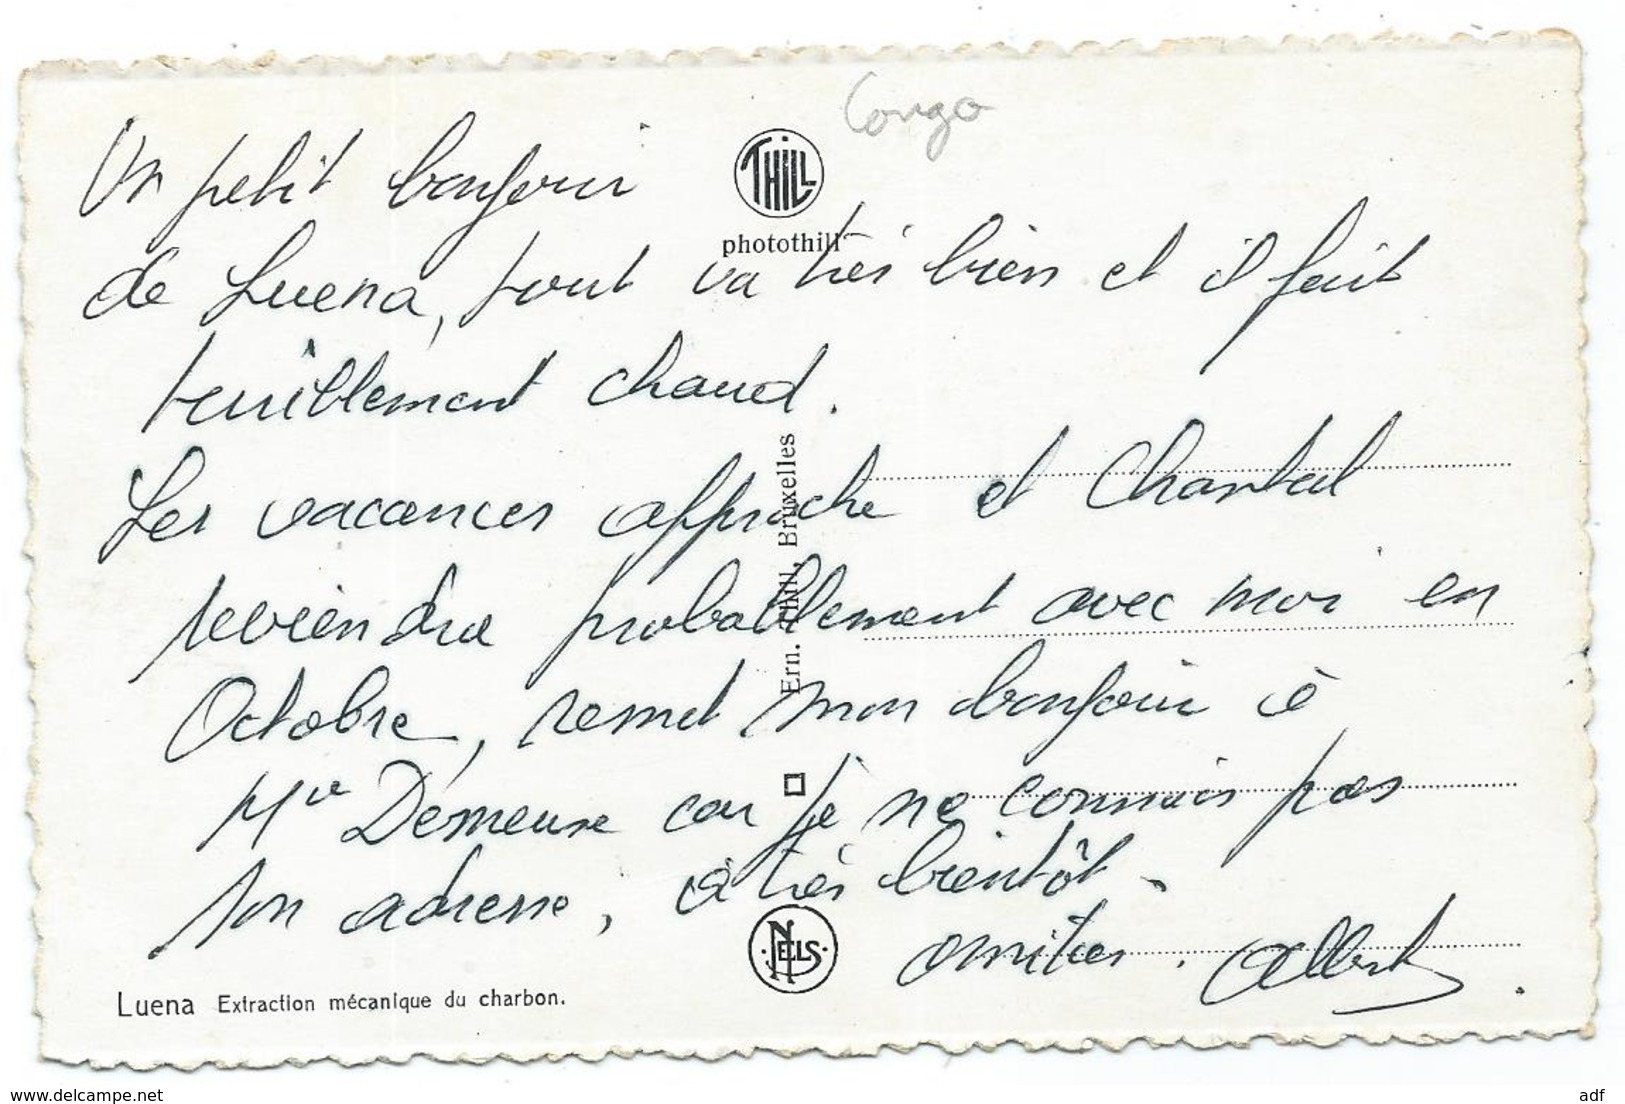 Congo
THILL
photothill
Un petit bonjour
de Luena, tout va très bien et il fait
terriblement chaud.
Les vacances approche et Chantal
reviendra probablement avec moi en
Octobre, remet mon bonjour à
Mr Demeuse car je ne connais pas
son adresse, à très bientôt.
amitiés. Albert.
Ern. Thill, Bruxelles
NELS
Luena Extraction mécanique du charbon.
www.delcampe.net
adf